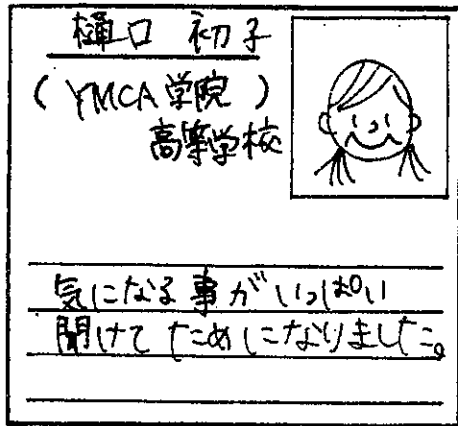 樋口 初子
(YMCA学院)
高等学校
気になる事がいっぱい
聞けてためになりました。